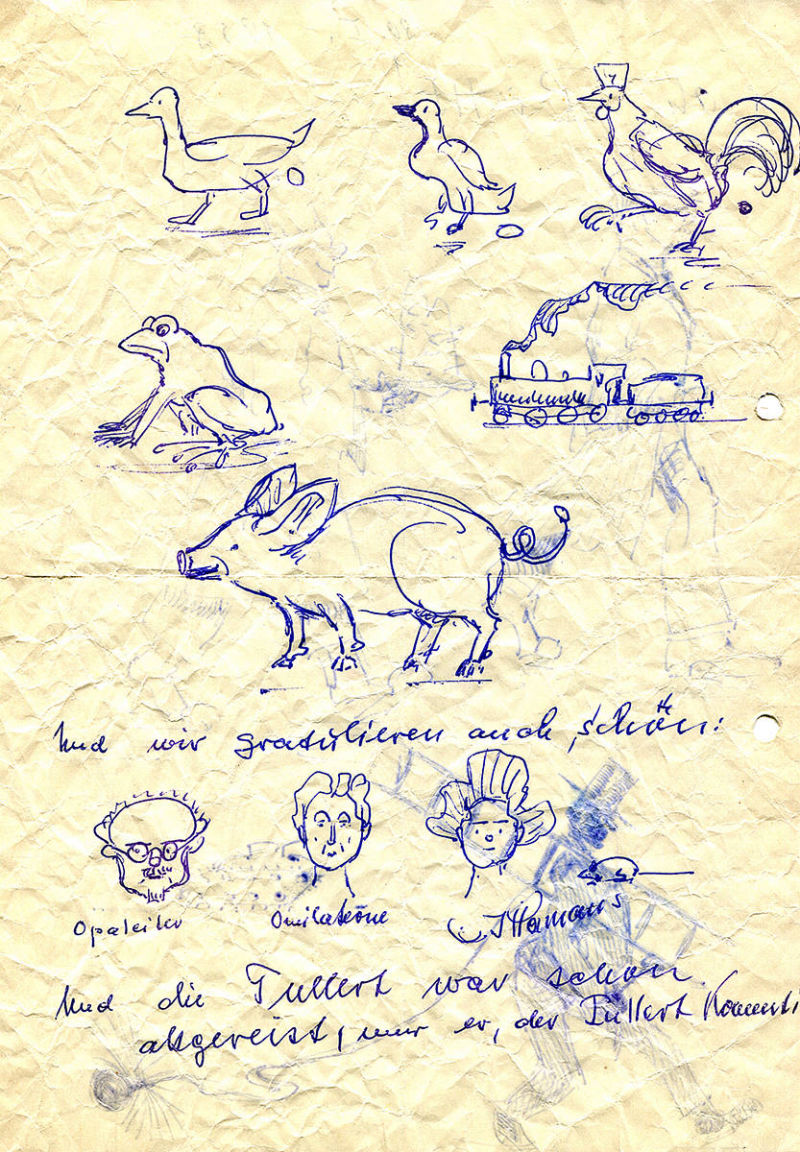 Und wir gratulieren auch schön:
Opaleiko Omilakröne
Und die Tullert war schon
abgereist, nur er, der Tüllert